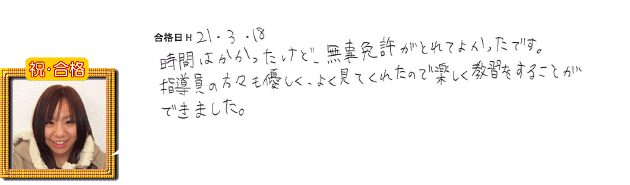 合格日H 21・3・18
時間はかかったけど、無事免許がとれてよかったです。
指導員の方々も優しく、よく見てくれたので楽しく教習をすることが
できました。
祝・合格